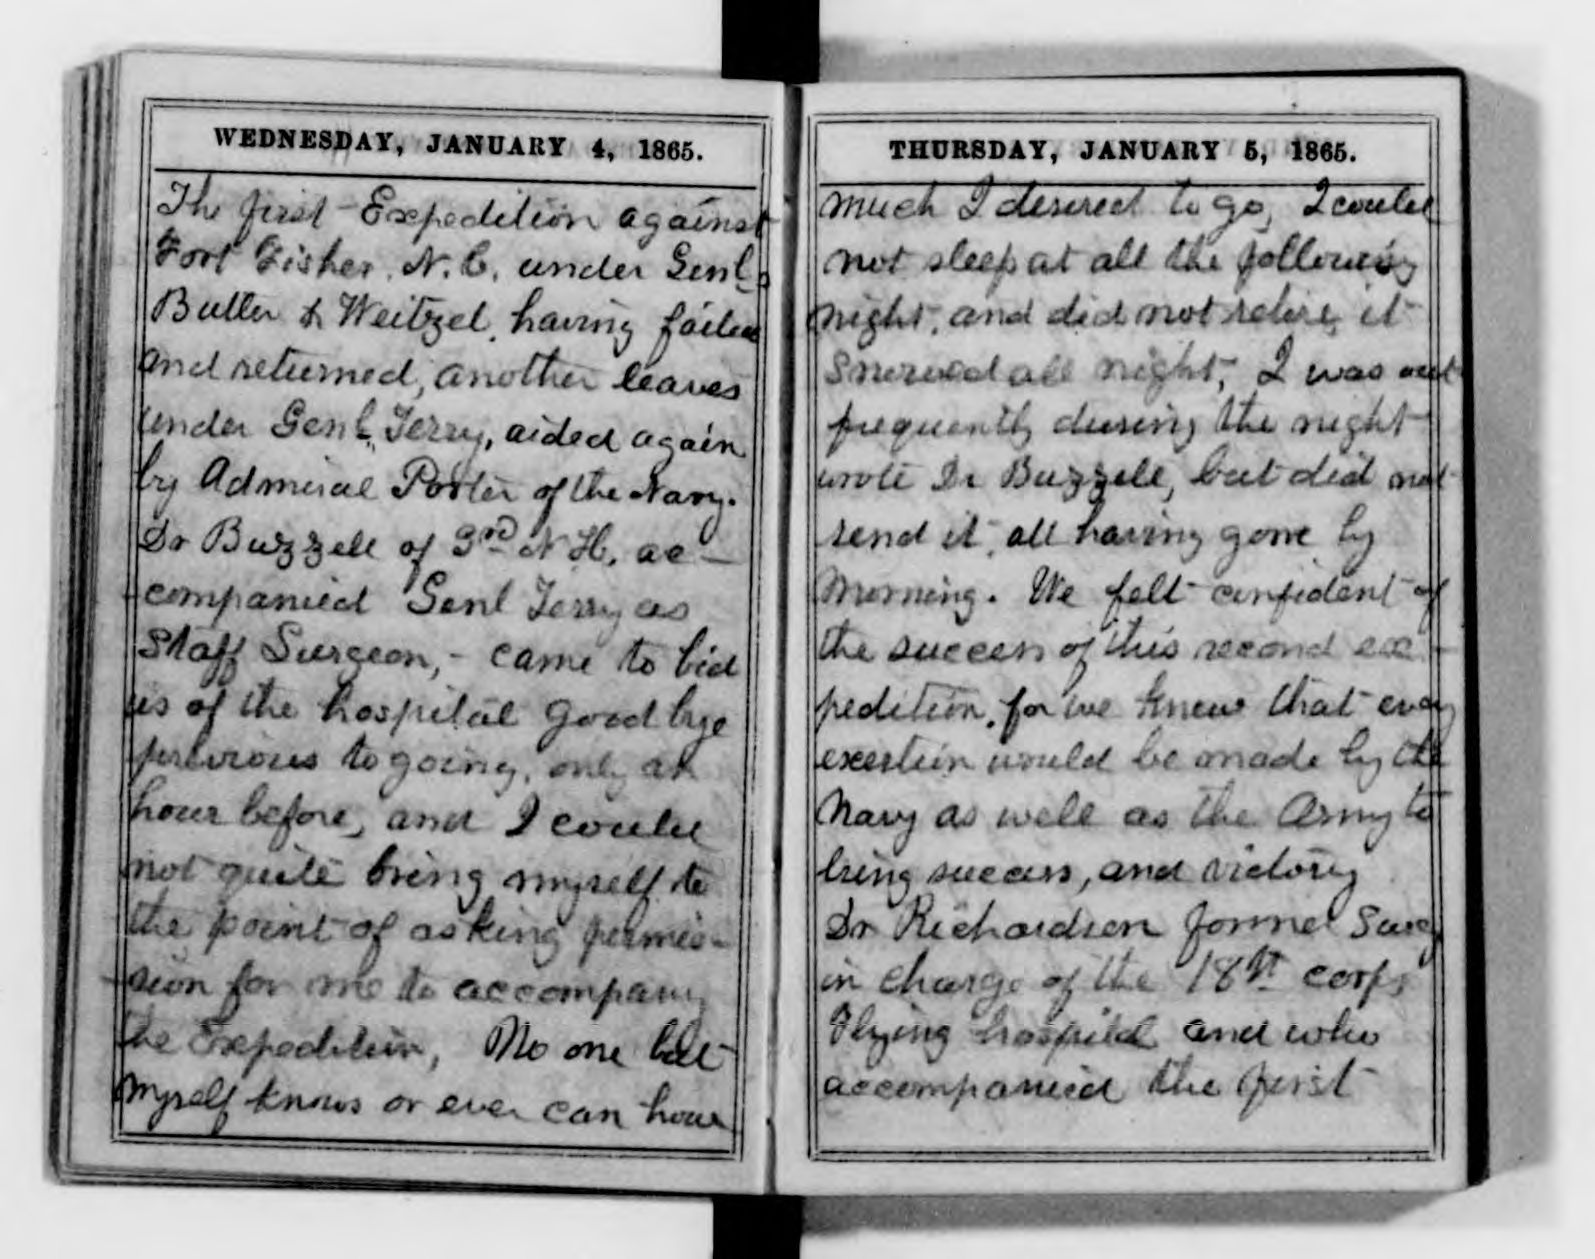 WEDNESDAY, JANUARY 4, 1865.
The first Expedition against
Fort Fisher, N.C. under Genls
Butler & Weitzel, having failed
and returned, another leaves
under Genl. Terry, aided again
by Admiral Porter of the Navy.
Dr Buzzell of 3rd N H. ac-
companied Genl Terry as
Staff Surgeon, - came to bid
us of the hospital good bye
previous to going, only an
hour before, and I could
not quite bring myself to
the point of asking permis-
sion for me to accompany
the Expedition, No one but
myself knows or ever can how
THURSDAY, JANUARY 5, 1865.
much I desired to go, I could
not sleep at all the following
night, and did not retire, it
snowed all night, I was out
frequently during the night
wrote Dr Buzzell, but did not
send it, all having gone by
morning. We felt confident of
the success of this second ex-
pedition, for we knew that every
exertion would be made by the
Navy as well as the Army to
bring success, and victory
Dr Richardson former Surg
in charge of the 18th corps
Flying hospital and who
accompanied the first